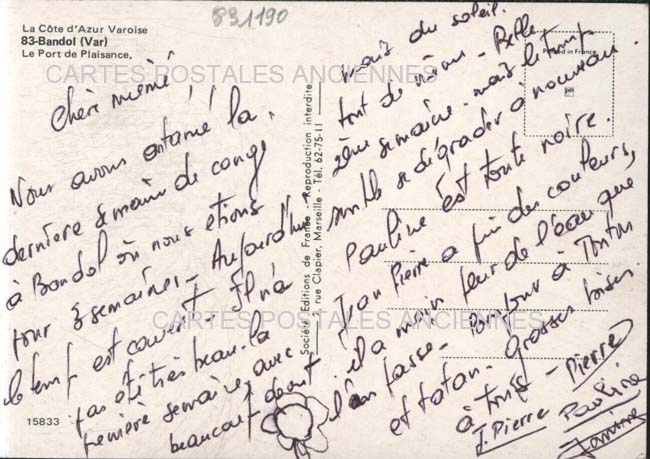 891190
La Côte d'Azur Varoise
83-Bandol (Var)
Le Port de Plaisance,
CARTES POSTALES ANCIENNES
Chère mémé !
Nous avons entamé la
dernière semaine de congé
à Bandol où nous étions
pour 3 semaines - Aujourd'hui
le temps est couvert Il n'a
pas été très beau. la
première semaine, avec
beaucoup de vent
15833
Société Editions de France - Reproduction interdite
2, rue Clapier, Marseille - Tél. 62-75-11
Printed in France
mais du soleil.
tout de même - Belle
2ème semaine. mais le temps
semble se dégrader à nouveau.
Pauline est toute noire.
Jean Pierre a pris des couleurs,
il a moins peur de l'eau que
l'an passé - Bonjour à Tonton
et tatan. Grosses bises
à tous - Pierre
J. Pierre Pauline
CARTES POSTALES ANCIENNES